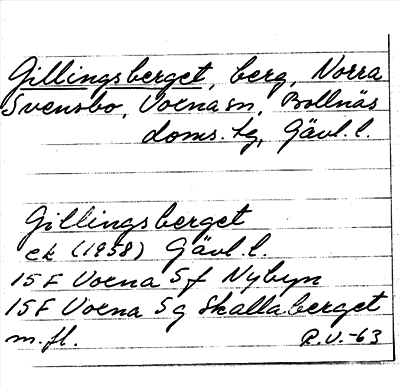 Gillingsberget, berg, Norra
Svensbo, Voxna sn, Bollnäs
doms. tg, Gävl. l.
Gillingsberget
ek (1958) Gävl. l.
15F Voxna 5f Nybyn
15F Voxna 5g Skallaberget
m. fl. R.V.-63